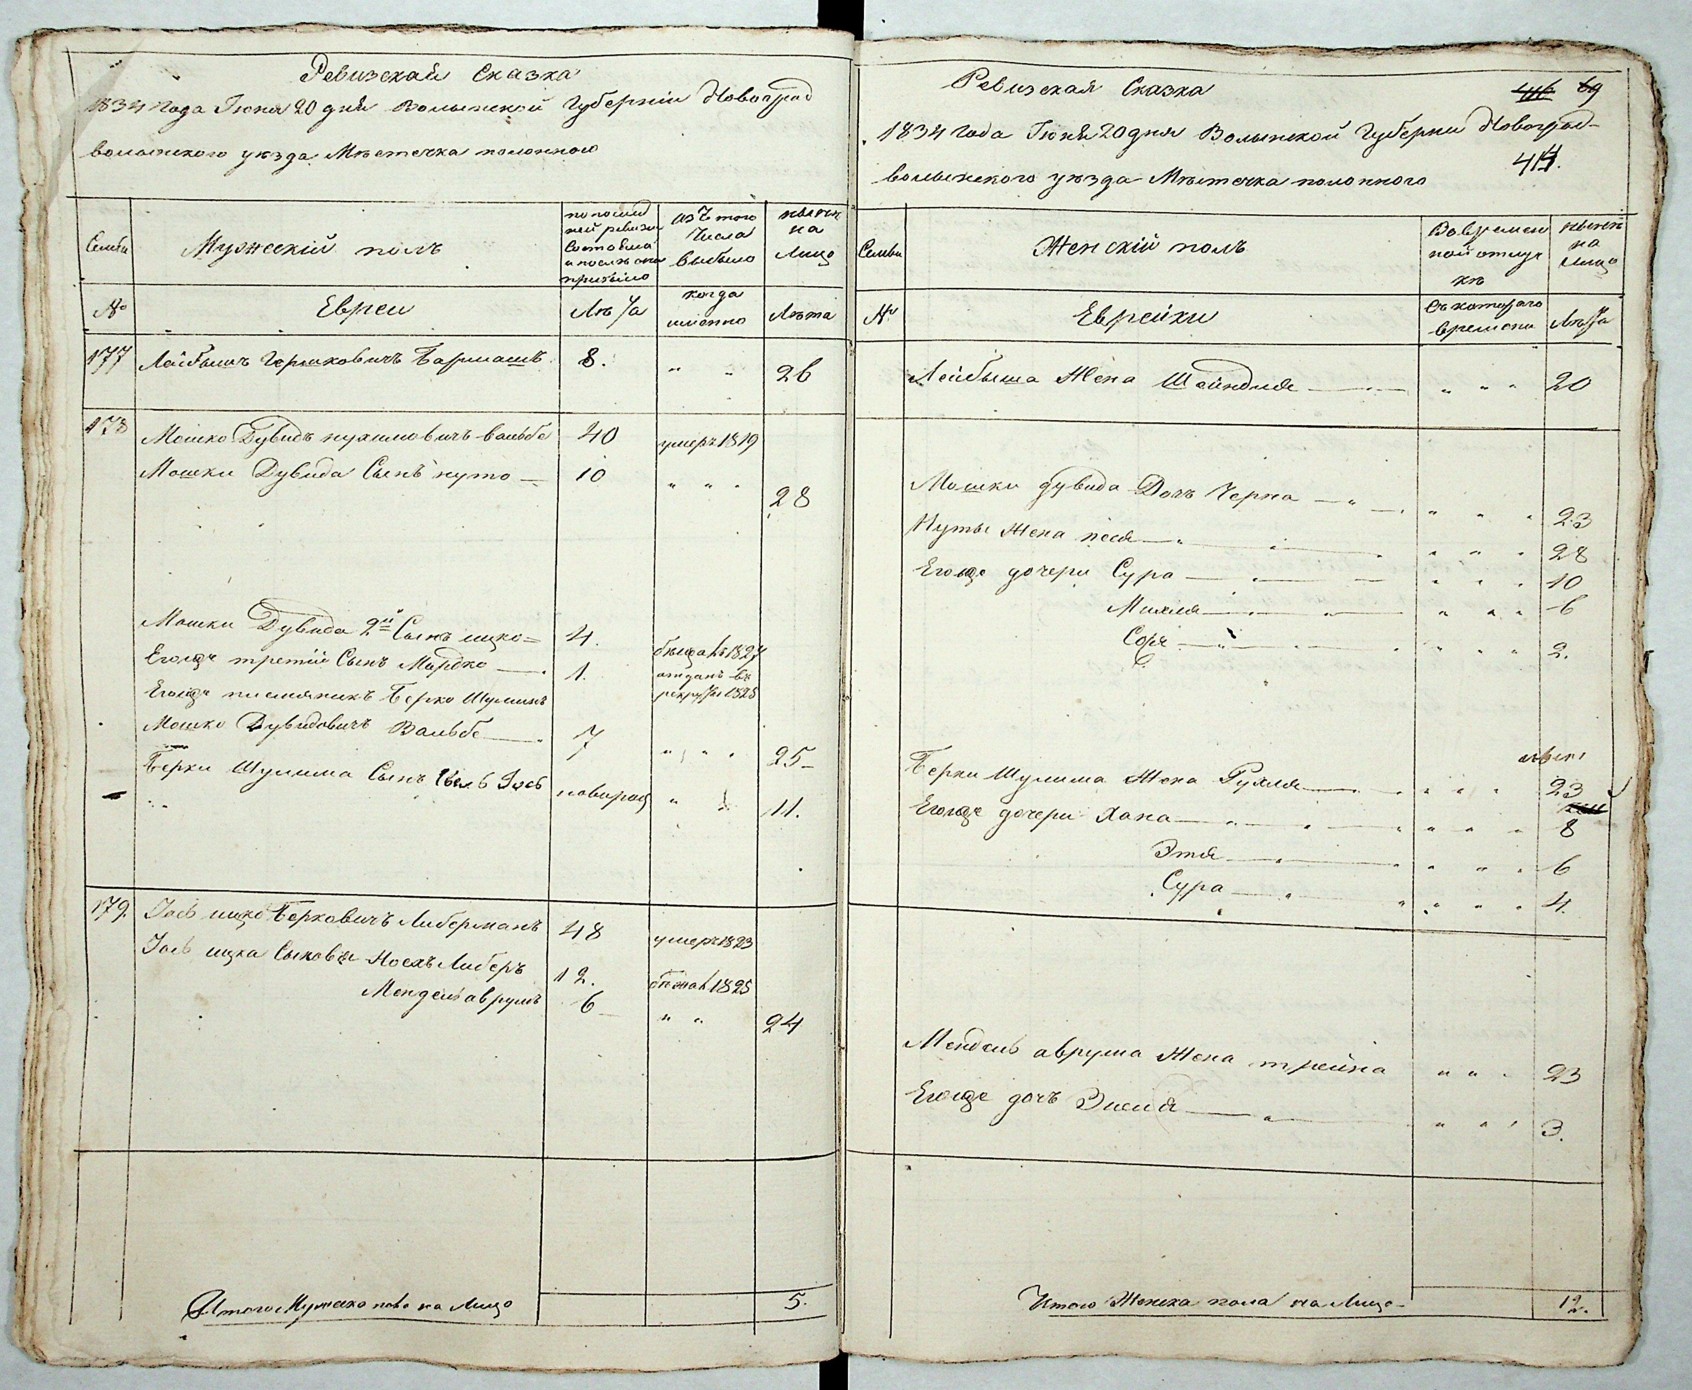 Ревизская Сказка
1834 года Іюня 20 дня Волынской Губерніи Новоград
волынского уезда Мѣстечка полонного
Семьи
Мужескій полъ
по послед
ней ревизіи
состояло
и после оной
прибыло
Изъ того
числа
выбыло
ныне
на
Лицо
№
Евреи
Лѣта
когда
именно
Лѣта
177 Лейбышъ Гершковичъ Бармашъ 8. " " 26
178 Мошко Дувидъ нухимовичъ вольбе 40 умеръ 1819
Мошки Дувида Сынъ нуто — 10 " " " 28
Мошки Дувида 2й Сынъ ицко 4. бежалъ 1827
Егожъ третій Сынъ Мордко 1. отданъ въ
рекруты 1828
Егожъ племяникъ Берко Шулимъ
Мошко Дувидовичъ Вольбе 7 " " " 25
Берки Шулима Сынъ Іосъ новорож " 11.
179. Іосъ ицко Берковичъ Либерманъ 48 умеръ 1823
Іосъ ицка Сыновья Носхъ Либеръ 12. бежалъ 1825
Мендель аврумъ 6 " " 24
Итого Мужеска пола на Лицо 5.
Ревизская Сказка
416 69
1834 года Іюня 20 дня Волынской Губерни Новоград-
волынского уезда Мѣстечка полонного
414.
Семьи
Женскій полъ
Во времен
ной отлуч
кѣ
ныне
на
лицо
№
Еврейки
Съ которого
времени
Лѣта
Лейбыша Жена Шейндля — " " " 20
Мошки дувида Дочь Черна — " " " 23
Нуты Жена песя — " " " 28
Егоже дочери Сура — " " " 10
Михля — " " " 6
Сося — " " " 2.
Берки Шулима Жена Рухля — " " " 23
Егоже дочери Хана — " " " 8
Этя — " " " 6
Сура — " " " 4.
Мендель аврума Жена трейна " " " 23
Егоже дочь Эисия — " " " 3.
Итого Женска пола на Лицо 12.